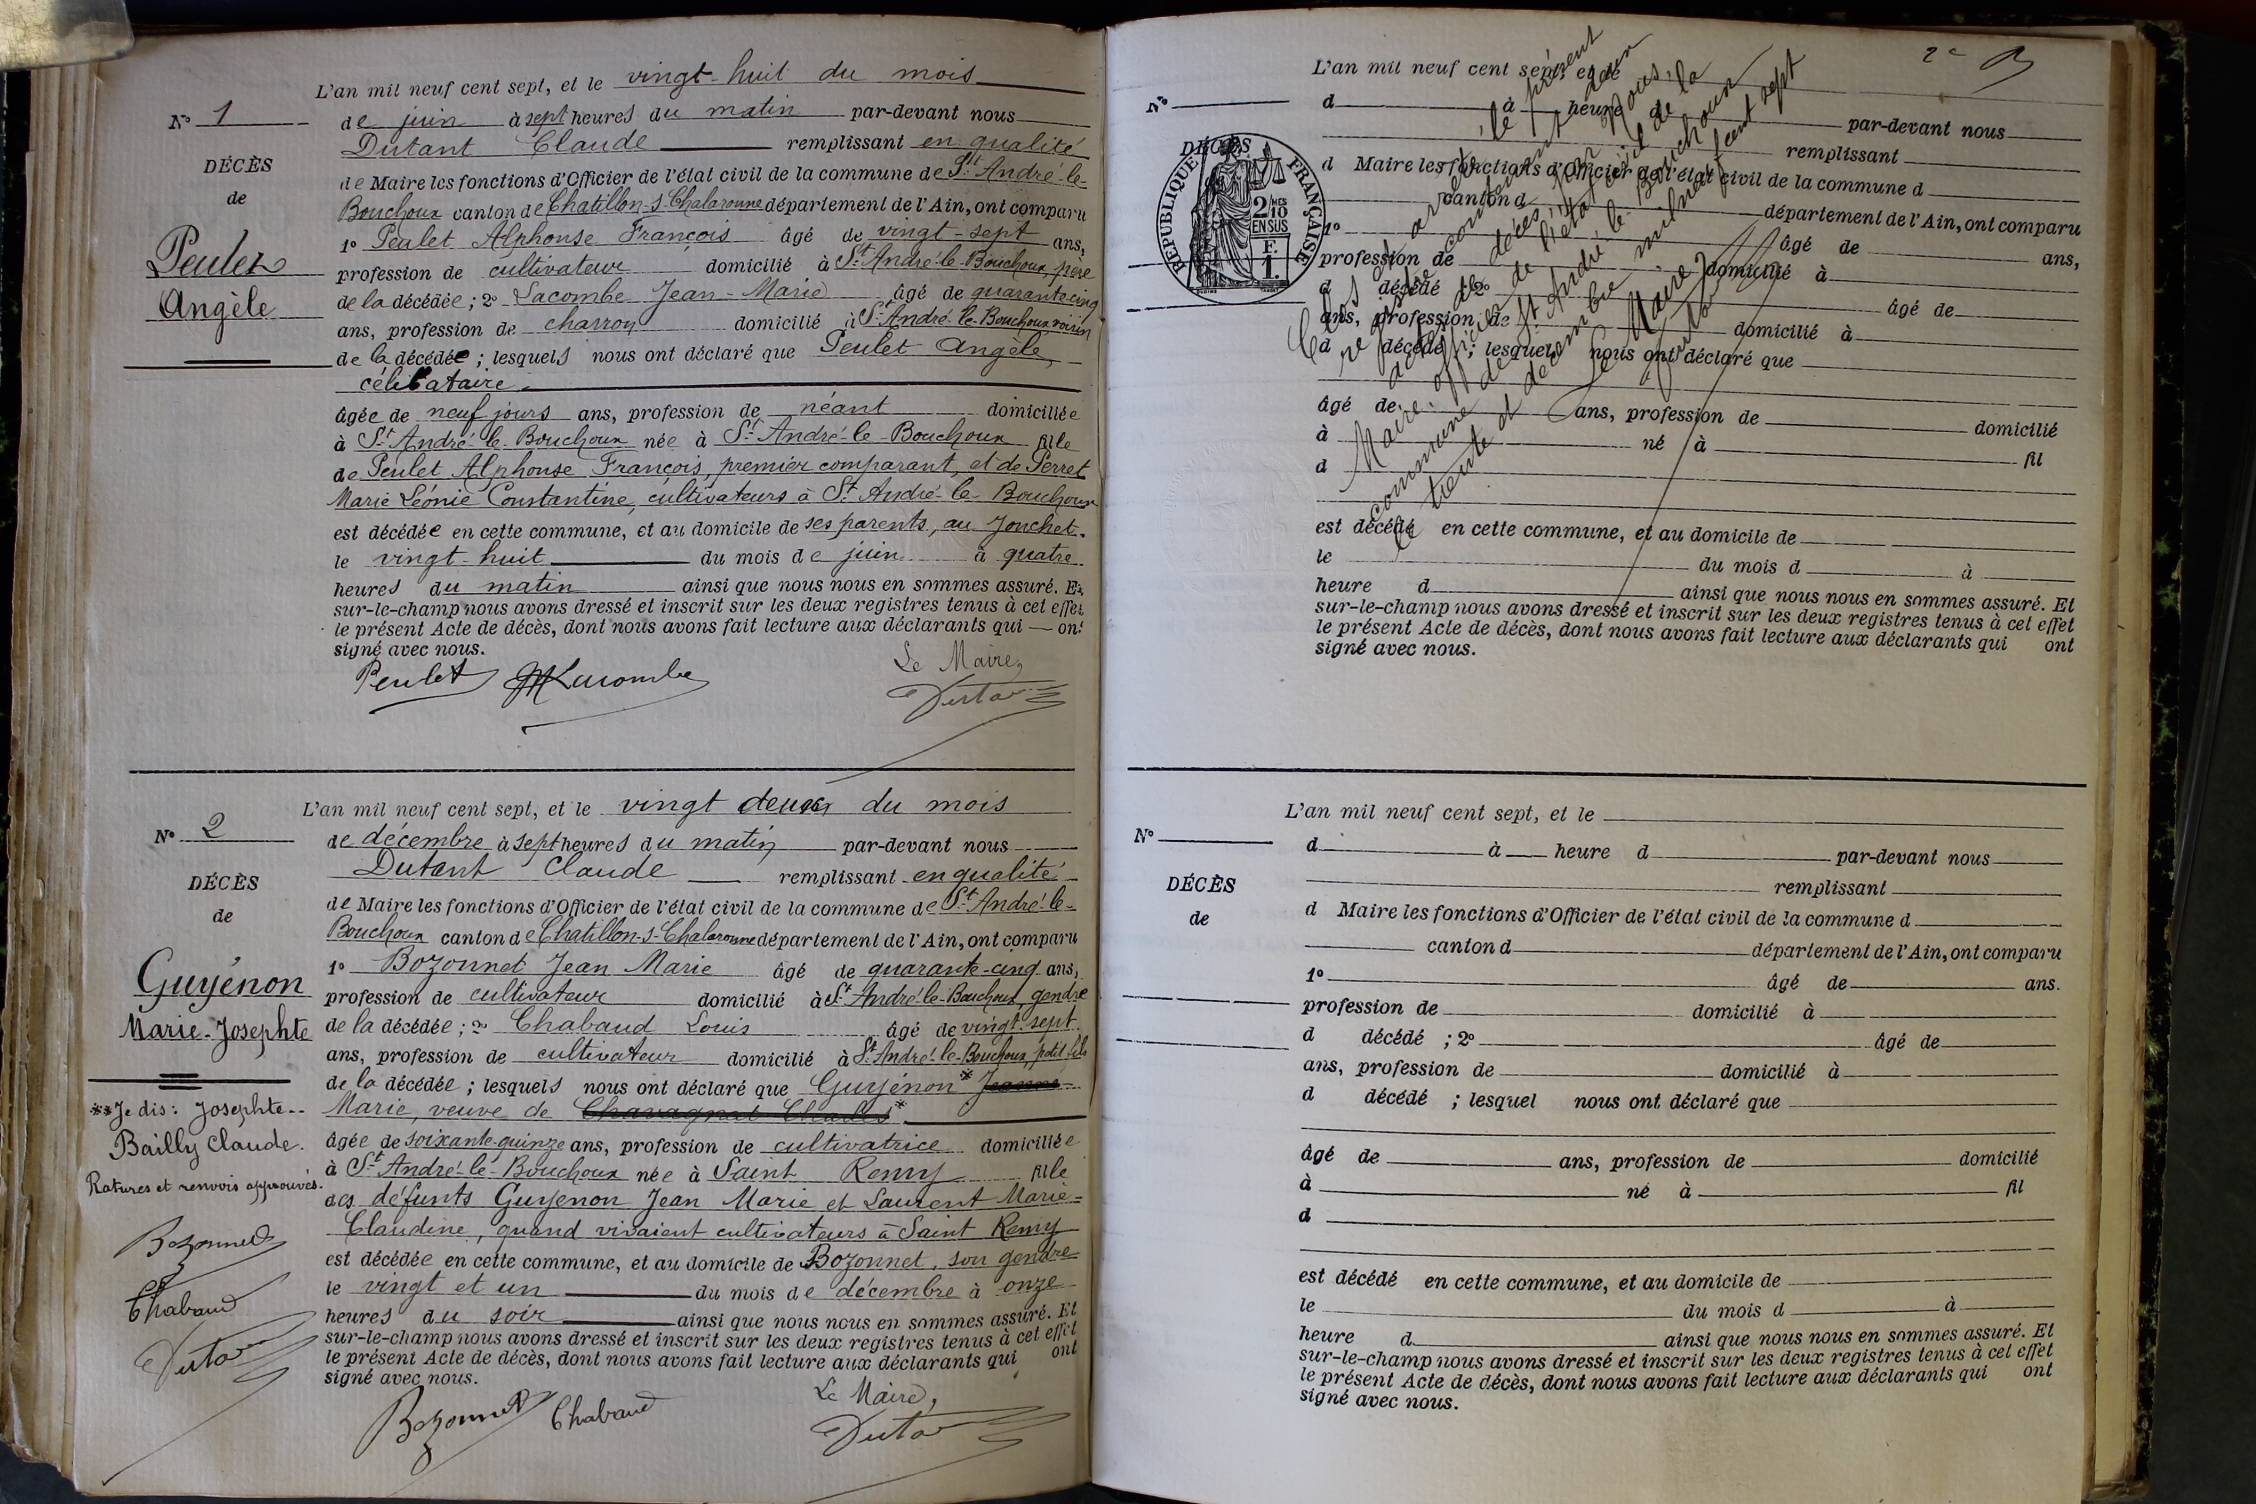 L'an mil neuf cent sept, et le vingt-huit du mois
N° 1
de juin à sept heures du matin par-devant nous
Dutant Claude remplissant en qualité
DÉCÈS
de
de Maire les fonctions d'Officier de l'état civil de la commune de St André-le-
Bouchoux canton de Chatillon-s-Chalaronne département de l'Ain, ont comparu
Peulet
Angèle
1° Peulet Alphonse François âgé de vingt-sept ans,
profession de cultivateur domicilié à St André-le-Bouchoux, père
de la décédée ; 2° Lacombe Jean-Marie âgé de quarante cinq
ans, profession de charron domicilié à St André-le-Bouchoux voisin
de la décédée ; lesquels nous ont déclaré que Peulet Angèle,
célibataire.
âgée de neuf jours ans, profession de néant domiciliée
à St André-le-Bouchoux née à St André-le-Bouchoux fille
de Peulet Alphonse François, premier comparant, et de Perret
Marie Léonie Constantine, cultivateurs à St André-le-Bouchoux
est décédée en cette commune, et au domicile de ses parents, au Jonchet.
le vingt-huit du mois de juin à quatre
heures du matin ainsi que nous nous en sommes assuré. Et
sur-le-champ nous avons dressé et inscrit sur les deux registres tenus à cet effet
le présent Acte de décès, dont nous avons fait lecture aux déclarants qui — ont
signé avec nous.
Le Maire,
Peulet JM Lacombe Dutant
L'an mil neuf cent sept, et le vingt deux du mois
N° 2
de décembre à sept heures du matin par-devant nous
Dutant Claude remplissant en qualité
DÉCÈS
de
de Maire les fonctions d'Officier de l'état civil de la commune de St André-le-
Bouchoux canton de Chatillon-s-Chalaronne département de l'Ain, ont comparu
Guyénon
Marie-Josephte
1° Bozonnet Jean Marie âgé de quarante-cinq ans,
profession de cultivateur domicilié à St André-le-Bouchoux, gendre
de la décédée ; 2° Chabaud Louis âgé de vingt-sept
ans, profession de cultivateur domicilié à St André-le-Bouchoux, petit-fils
de la décédée ; lesquels nous ont déclaré que Guyénon* Jeanne-
Marie, veuve de Chavagnat Charles*
âgée de soixante-quinze ans, profession de cultivatrice domiciliée
à St André-le-Bouchoux née à Saint Remy fille
des défunts Guyenon Jean Marie et Laurent Marie-
Claudine, quand vivaient cultivateurs à Saint Remy
est décédée en cette commune, et au domicile de Bozonnet, son gendre
le vingt et un du mois de décembre à onze
heures du soir ainsi que nous nous en sommes assuré. Et
sur-le-champ nous avons dressé et inscrit sur les deux registres tenus à cet effet
le présent Acte de décès, dont nous avons fait lecture aux déclarants qui ont
signé avec nous.
Le Maire,
Bozonnet Chabaud Dutant
**Je dis: Josephte--
Bailly Claude.
Ratures et renvois approuvés.
Bozonnet
Chabaud
Dutant
2e
L'an mil neuf cent sept, et le
N°
d à heure d par-devant nous
remplissant
DÉCÈS
d Maire les fonctions d'Officier de l'état civil de la commune d
canton d département de l'Ain, ont comparu
1° âgé de ans,
profession de domicilié à
d décédé ; 2° âgé de
ans, profession de domicilié à
d décédé ; lesquel nous ont déclaré que
âgé de ans, profession de domicilié
à né à fil
d
est décédé en cette commune, et au domicile de
le du mois d à
heure d ainsi que nous nous en sommes assuré. Et
sur-le-champ nous avons dressé et inscrit sur les deux registres tenus à cet effet
le présent Acte de décès, dont nous avons fait lecture aux déclarants qui ont
signé avec nous.
RÉPUBLIQUE FRANÇAISE
2 MES
10
EN SUS
F.
1.
Clos et arrêté le présent
registre contenant deux
actes de décès, par Nous,
Maire, officier de l'état civil de la
commune de St André-le-Bouchoux
le trente et décembre mil neuf cent sept
Le Maire,
Dutant
L'an mil neuf cent sept, et le
N°
d à heure d par-devant nous
remplissant
DÉCÈS
de
d Maire les fonctions d'Officier de l'état civil de la commune d
canton d département de l'Ain, ont comparu
1° âgé de ans.
profession de domicilié à
d décédé ; 2° âgé de
ans, profession de domicilié à
d décédé ; lesquel nous ont déclaré que
âgé de ans, profession de domicilié
à né à fil
d
est décédé en cette commune, et au domicile de
le du mois d à
heure d ainsi que nous nous en sommes assuré. Et
sur-le-champ nous avons dressé et inscrit sur les deux registres tenus à cet effet
le présent Acte de décès, dont nous avons fait lecture aux déclarants qui ont
signé avec nous.